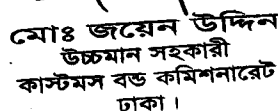 মোঃ জয়েন উদ্দিন
উচ্চমান সহকারী
কাস্টমস বন্ড কমিশনারেট
ঢাকা।